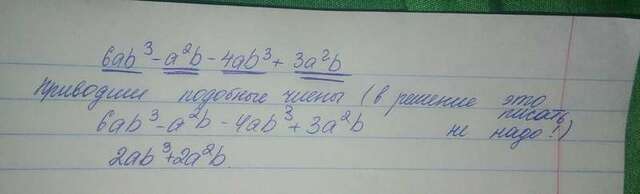 6ab³ - a²b - 4ab³ + 3a²b
Приводим подобные члены (в решение это писать не надо!)
6ab³ - a²b - 4ab³ + 3a²b
2ab³ + 2a²b